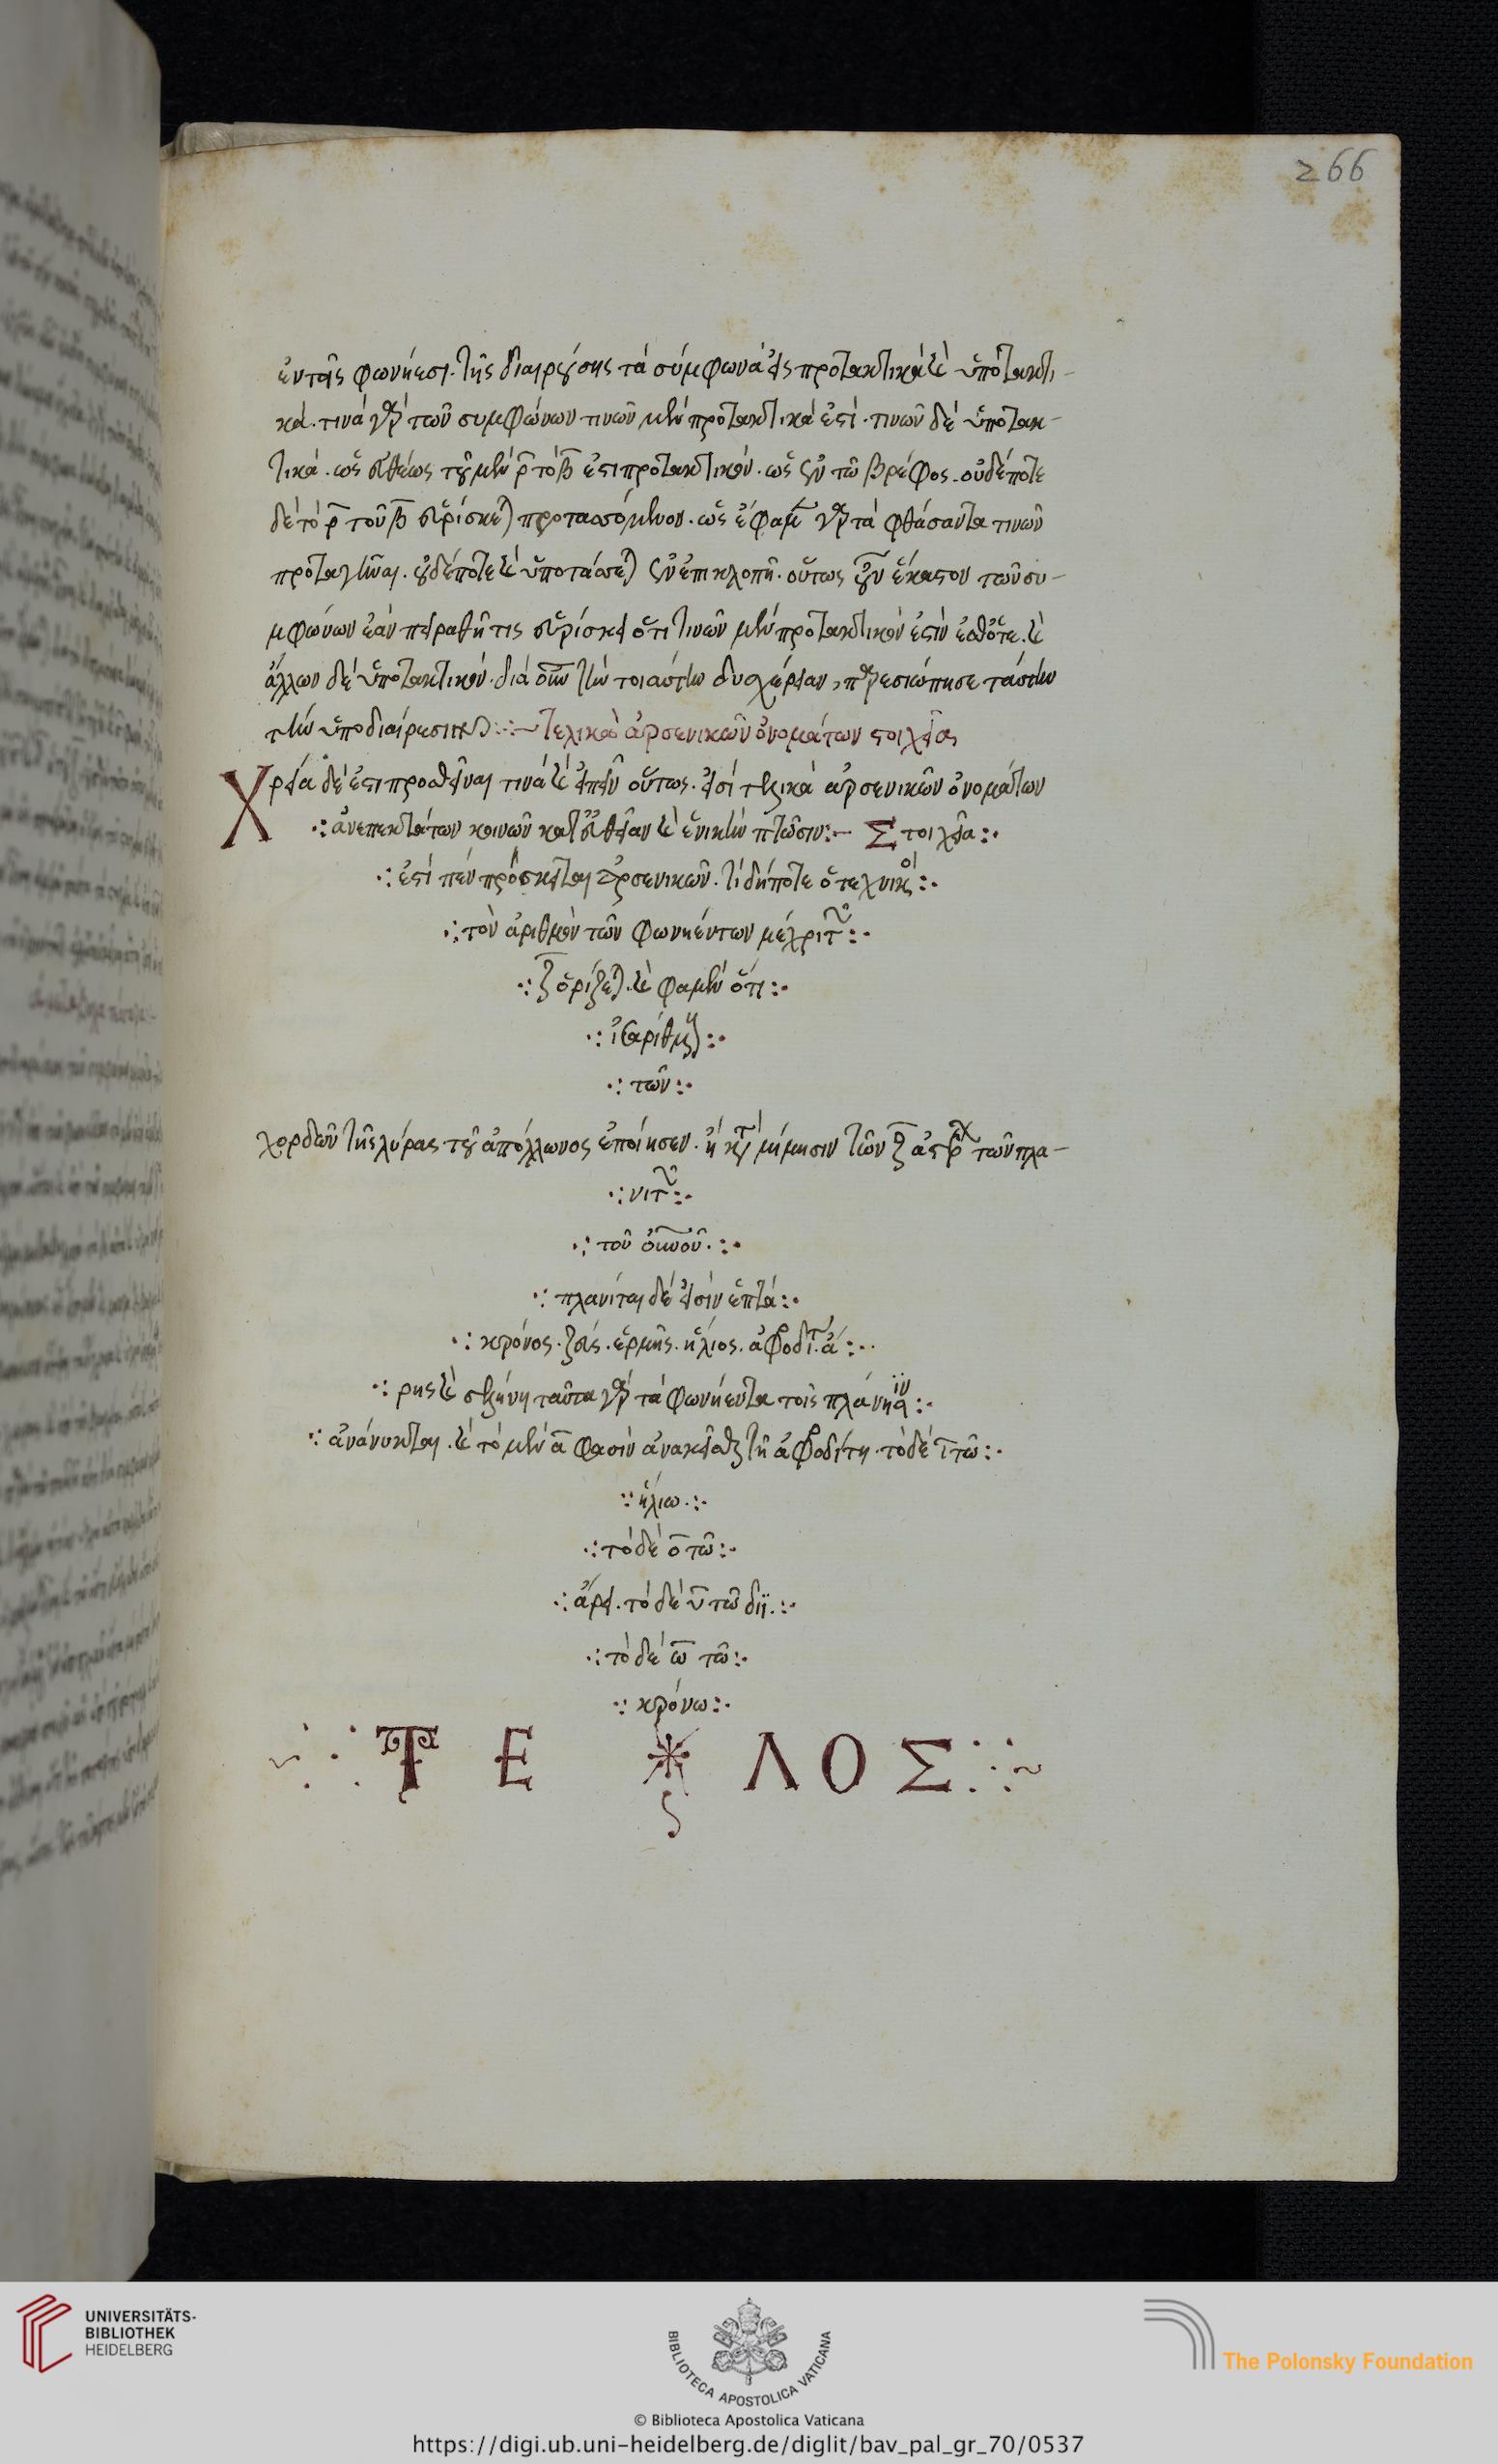 266
ἐν ταῖς φωνήεσι. τῆς διαιρούσης τὰ σύμφωνα εἰς προτακτικὰ καὶ ὑποτακτι-
κά. τινὰ γὰρ τῶν συμφώνων τινῶν μὲν προτακτικά ἐστι. τινῶν δὲ ὑποτακ-
τικά. ὡς εὐθέως τοῦ μὲν ρ τὸ β ἐστι προτακτικόν. ὡς ἐν τῶ βρέφος. οὐδέποτε
δὲ τὸ ρ τοῦ β εὑρίσκεται προτασσόμενον. ὡς ἔφαμεν γὰρ τὰ φθάσαντα τινῶν
προταγῆναι. οὐδέποτε καὶ ὑποτάσσεται ἐν ἐπιπλοκῆ. οὕτως οὖν ἕκαστον τῶν συ-
μφώνων ἐὰν πειραθῆ τις εὑρίσκει ὅτι τινῶν μὲν προτακτικόν ἐστιν ἐσθότε. καὶ
ἄλλων δὲ ὑποτακτικόν. διὰ οὖν τὴν τοιαύτην δυσχέρειαν, παρεσιώπησε ταύτην
τὴν ὑποδιαίρεσιν. τελικὰ ἀρσενικῶν ὀνομάτων στοιχεῖα
Χρεία δέ ἐστι προσθεῖναι τινὰ καὶ εἰπεῖν οὕτως. εἰσὶ τελικὰ ἀρσενικῶν ὀνομάτων
ἀνεπεκτάτων κοινῶν κατ εὐθεῖαν καὶ ἑνικὴν πτῶσιν :- Στοιχεῖα
πρόσκειται ἀρσενικῶν. τί δήποτε ὁ τεχνικὸς
τὸν ἀριθμὸν τῶν φωνηέντων μέχρι τῶν
ζ ὁρίζεται. καὶ φαμὲν ὅτι
ἰσαρίθμους
τῶν
χορδῶν τῆς λύρας τοῦ ἀπόλλωνος ἐποίησεν. ἢ κατὰ μίμησιν τῶν ζ ἀστέρων τῶν πλα-
νιτῶν
τοῦ οὐρανοῦ.
πλανίται δέ εἰσιν ἑπτά
κρόνος. ζεύς. ἑρμῆς. ἥλιος. ἀφροδίτη. ἄ
ρης καὶ σελήνη ταῦτα γὰρ τὰ φωνήεντα τοῖς πλάνησιν
ἀνάκεινται. καὶ τὸ μὲν α φασὶν ἀνακεῖσθαι τῆ ἀφροδίτη. τὸ δὲ ι τῶ
ἡλίω
τὸ δὲ ο τῶ
ἄρει. τὸ δὲ υ τῶ διΐ.
τὸ δὲ ω τῶ
κρόνω
ΤΕ ΛΟΣ
UNIVERSITÄTS-
BIBLIOTHEK
HEIDELBERG
BIBLIOTECA APOSTOLICA VATICANA
The Polonsky Foundation
© Biblioteca Apostolica Vaticana
https://digi.ub.uni-heidelberg.de/diglit/bav_pal_gr_70/0537